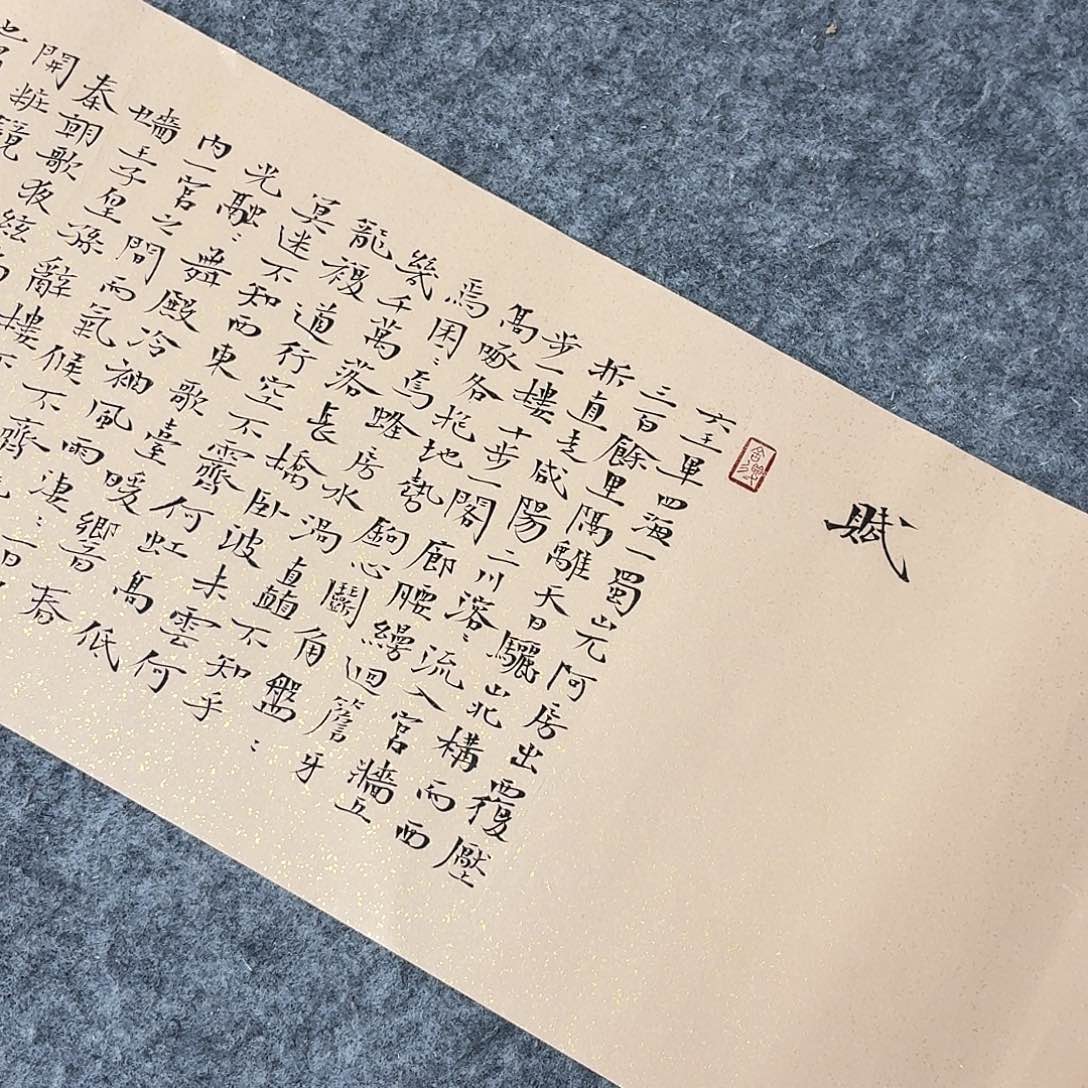 賦
六王畢四海一蜀山兀阿房出覆壓
三百餘里隔離天日驪山北構而西
折直走咸陽二川溶〻流入宮牆五
步一樓十步一閣廊腰縵迴簷牙
高啄各抱地勢鉤心鬭角盤〻
焉困〻焉蜂房水渦矗不知乎
幾千萬落長橋臥波未雲何
龍複道行空不霽何虹高低
冥迷不知西東歌臺暖響春
光融〻舞殿冷袖風雨淒〻一日
内一宮之間而氣候不齊
嬙王子皇孫辭樓下
秦朝歌夜絃
開粧鏡也